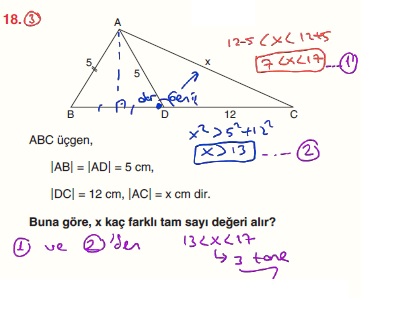 18. 3
A
12-5 < x < 12+5
7 < x < 17 ---- 1
5
5
x
dar
geniş
B
D
12
C
x² > 5² + 12²
x > 13 ---- 2
ABC üçgen,
|AB| = |AD| = 5 cm,
|DC| = 12 cm, |AC| = x cm dir.
Buna göre, x kaç farklı tam sayı değeri alır?
1 ve 2'den 13 < x < 17
↳ 3 tane